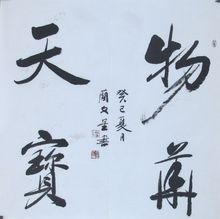 物華
天寶
癸巳夏月
蘭文𠄘書